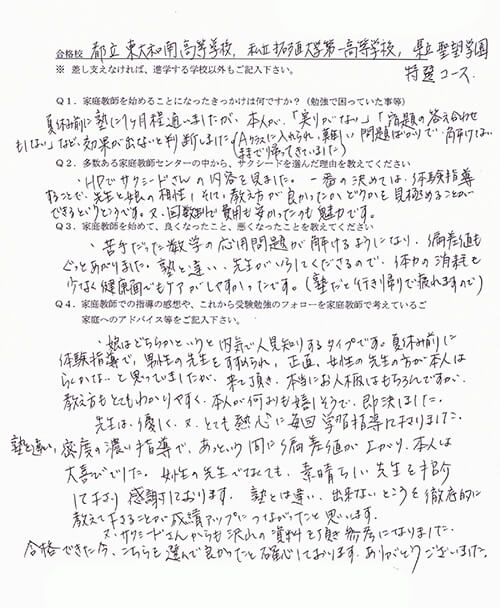 合格校 都立東大和南高等学校、私立拓殖大学第一高等学校、県立聖望学園
※ 差し支えなければ、進学する学校以外もご記入下さい。 特選コース.
Q1. 家庭教師を始めることになったきっかけは何ですか?(勉強で困っていた事等)
夏休み前に塾に1ヶ月程通いましたが、本人が、「実りがない」「宿題の答え合わせ
もしない」など、効果が出ないと判断しました(Aクラスに入れられ、難しい問題ばかりで、解けない
まま帰ってきていました)
Q2. 多数ある家庭教師センターの中から、サクシードを選んだ理由を教えてください
・HPでサクシードさんの内容を見ました。一番の決めては、体験指導
することで、先生と娘の相性、そして、教え方が良かったかどうかを見極めることが
できるというところです。又、回数制で費用も安かったのも魅力です。
Q3. 家庭教師を始めて、良くなったこと、悪くなったことを教えてください
・苦手だった数学の応用問題が解けるようになり、偏差値も
ぐっとあがりました。塾と違い、先生がいらしてくださるので、体力の消耗も
少なく健康面でもケアがしやすかったです。(塾だと行き帰りで疲れますので)
Q4. 家庭教師での指導の感想や、これから受験勉強のフォローを家庭教師で考えているご
家庭へのアドバイス等をご記入下さい。
・娘はどちらかというと内気で人見知りするタイプです。夏休み前に
体験指導で、男性の先生をすすめられ、正直、女性の先生の方が本人は
いいかな…と思っていましたが、来て頂き、本当にお人柄はもちろんですが、
教え方もとてもわかりやすく、本人が何よりも嬉しそうで、即決しました。
先生は、優しく、又、とても熱心に毎回学習指導下さりました。
塾と違い、密度の濃い指導で、あっという間に偏差値が上がり、本人は
大喜びでした。女性の先生でなくても、素晴らしい先生を紹介
して下さり感謝しております。塾とは違い、出来ないところを徹底的に
教えて下さることが成績アップにつながったと思います。
又、サクシードさんからも沢山の資料を頂き参考になりました。
合格できた今、こちらを選んで良かったと確心しております。ありがとうございました。